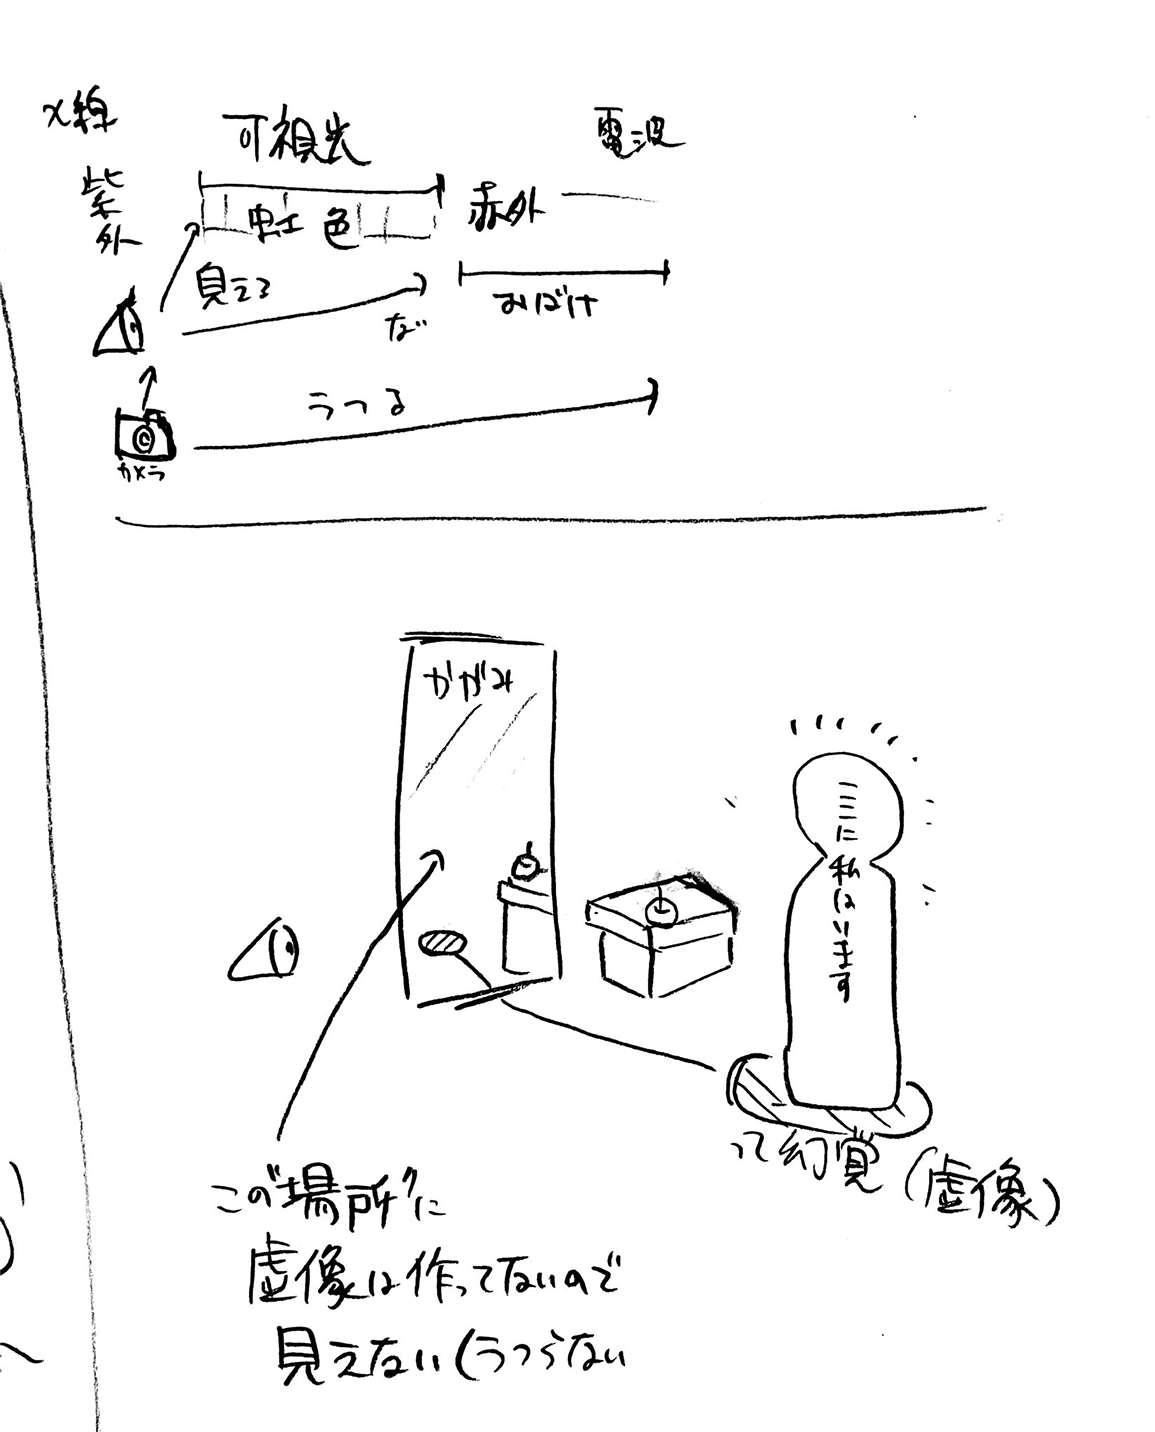 X線
可視光
電波
紫外
虹色
赤外
見える
おばけ
だ
うつる
カメラ
かがみ
ここに私はいます
って幻覚(虚像)
この"場所"に
虚像は作ってないので
見えない(うつらない